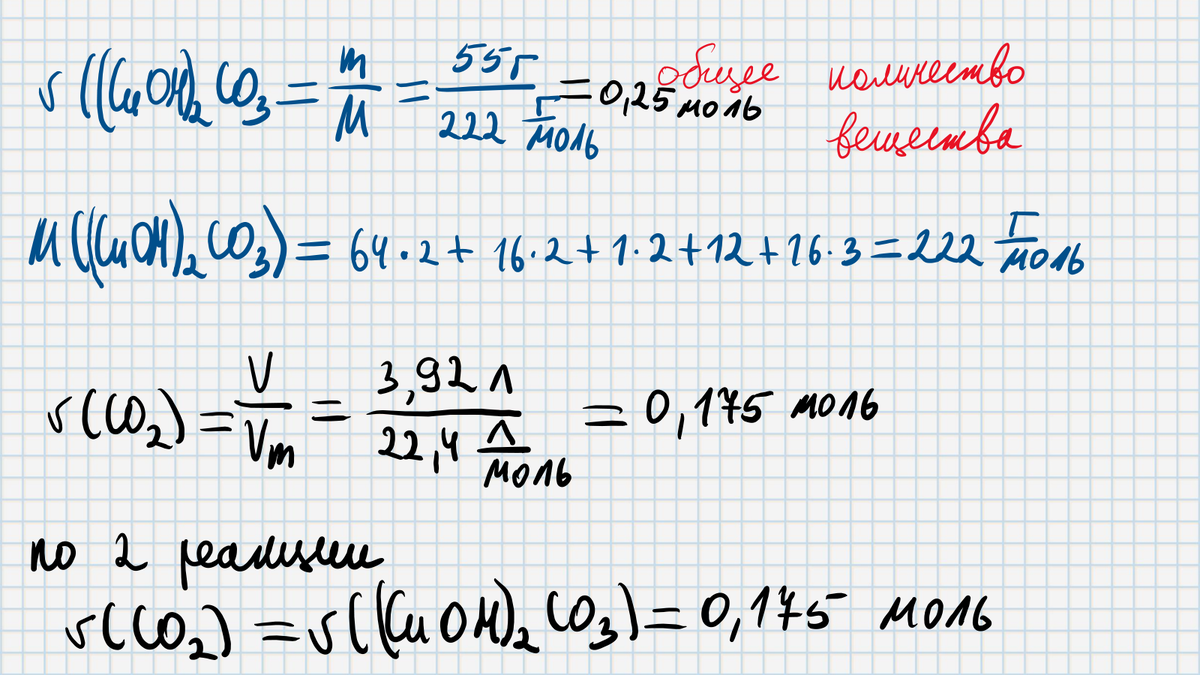 ν((CuOH)₂CO₃ = m/M = 55г/222 г/моль = 0,25 моль общее количество
вещества
M((CuOH)₂CO₃) = 64·2 + 16·2 + 1·2 + 12 + 16·3 = 222 г/моль
ν(CO₂) = V/Vm = 3,92 л/22,4 л/моль = 0,175 моль
по 2 реакции
ν(CO₂) = ν((CuOH)₂CO₃) = 0,175 моль